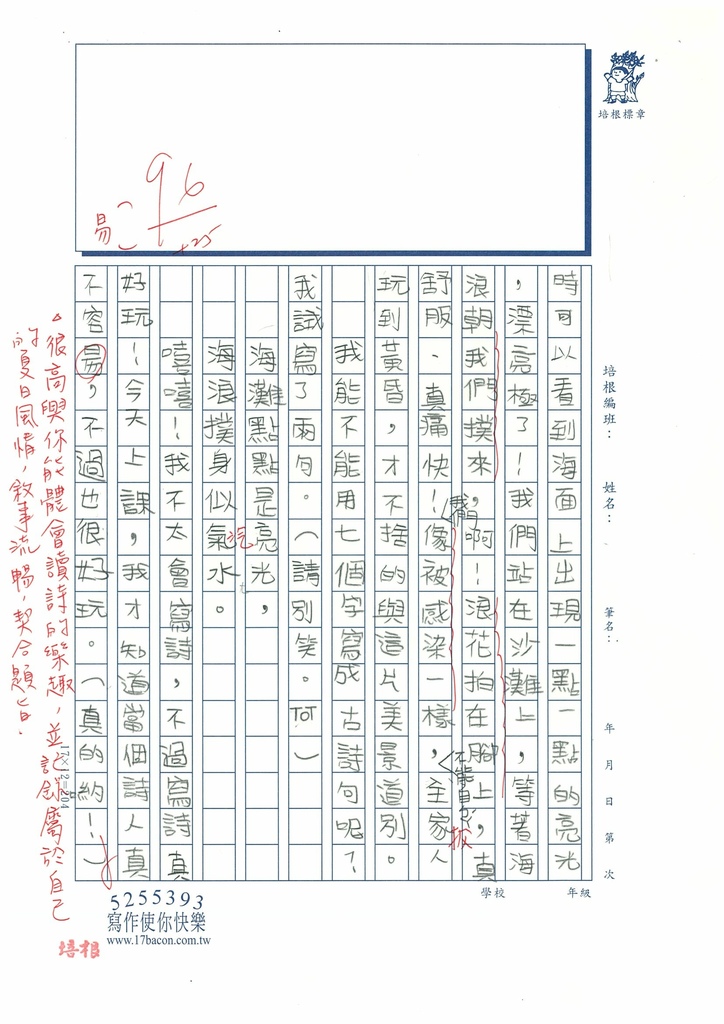 培根標章
96
+25
易
培根編班：
姓名：
筆名：
年 月 日 第 次
學校
年級
時可以看到海面上出現一點一點的亮光
，漂亮極了！我們站在沙灘上，等著海
浪朝我們撲來，啊！浪花拍在腳上，真
舒服、真痛快！像被感染一樣，全家人
玩到黃昏，才不捨的與這片美景道別。
我能不能用七個字寫成古詩句呢？
我試寫了兩句。（請別笑。）
海灘點點是亮光，
海浪撲身似氣水。
汽
嘻嘻！我不太會寫詩，不過寫詩真
好玩！今天上課，我才知道當個詩人真
不容易，不過也很好玩。（真的約！）
我們
不能自
很高興你能體會讀詩的樂趣，並記錄屬於自己
的夏日風情，敘事流暢，契合題旨．
17×12=204
5255393
寫作使你快樂
www.17bacon.com.tw
培根